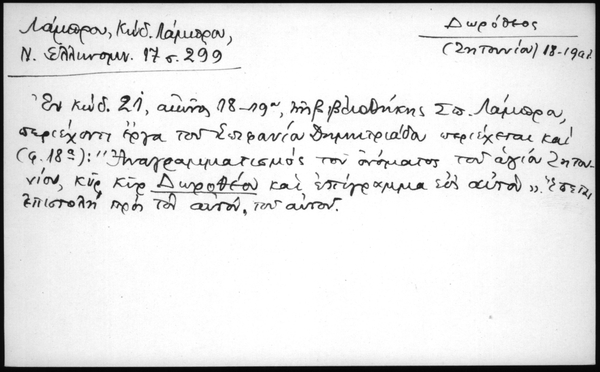 Λάμπρου, Κώδ. Λάμπρου,
Ν. Ἑλληνομν. 17 σ. 299
Δωρόθεος
(Ζητουνίου) 18-19αι.
Ἐν κώδ. 21, αἰῶνος 18-19ου, τῆς βιβλιοθήκης Σπ. Λάμπρου,
περιέχοντι ἔργα τοῦ Κυπριανοῦ Δημητριάδου περιέχεται καὶ
(φ. 18α): "Ἀναγραμματισμὸς τοῦ ὀνόματος τοῦ ἁγίου Ζητου-
νίου, κὺρ κὺρ Δωροθέου καὶ ἐπίγραμμα εἰς αὐτόν". Ἕπεται
ἐπιστολὴ πρὸς τὸν αὐτόν, τοῦ αὐτοῦ.